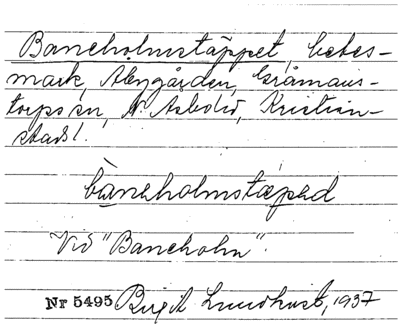 Baneholmstäppet, betes-
mark, Åbygården, Gråmans-
torps sn, N. Åsbo hd, Kristian-
stads l.
bàneholmstæped
Vid "Baneholm".
Nr 5495 Birgit Lundkvist, 1937